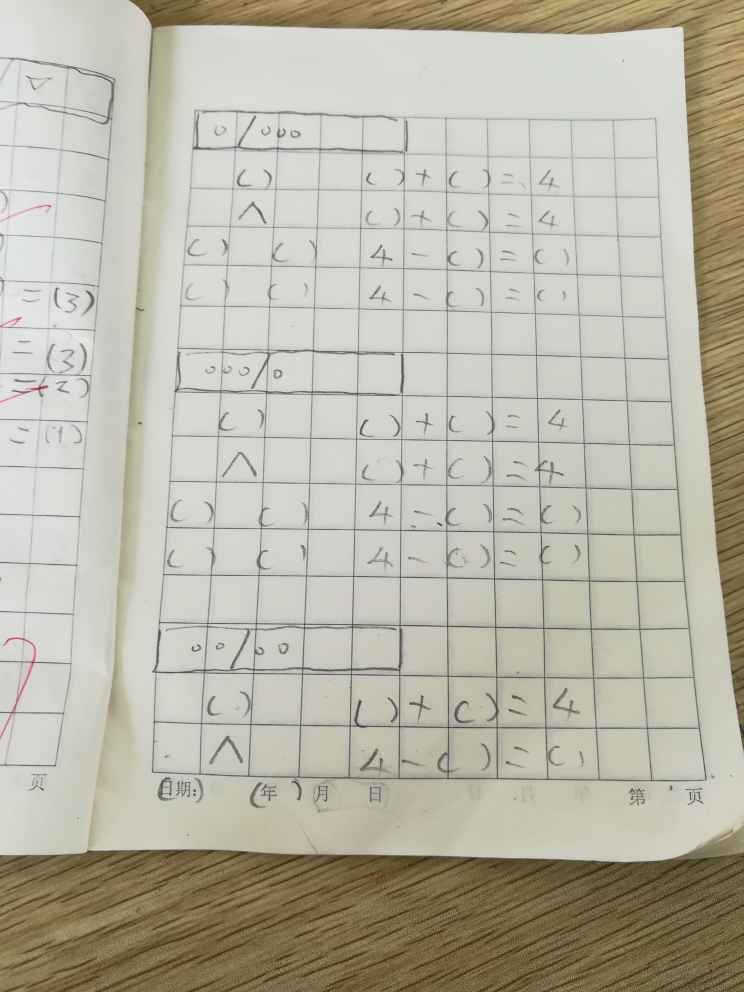 ▽
= (3)
= (3)
= (2)
= (1)
页
○ / ○○○
( ) ( ) + ( ) = 4
∧ ( ) + ( ) = 4
( ) ( ) 4 - ( ) = ( )
( ) ( ) 4 - ( ) = ( )
○○○ / ○
( ) ( ) + ( ) = 4
∧ ( ) + ( ) = 4
( ) ( ) 4 - ( ) = ( )
( ) ( ) 4 - ( ) = ( )
○○ / ○○
( ) ( ) + ( ) = 4
∧ 4 - ( ) = ( )
(日期:) (年) 月 日 第 页